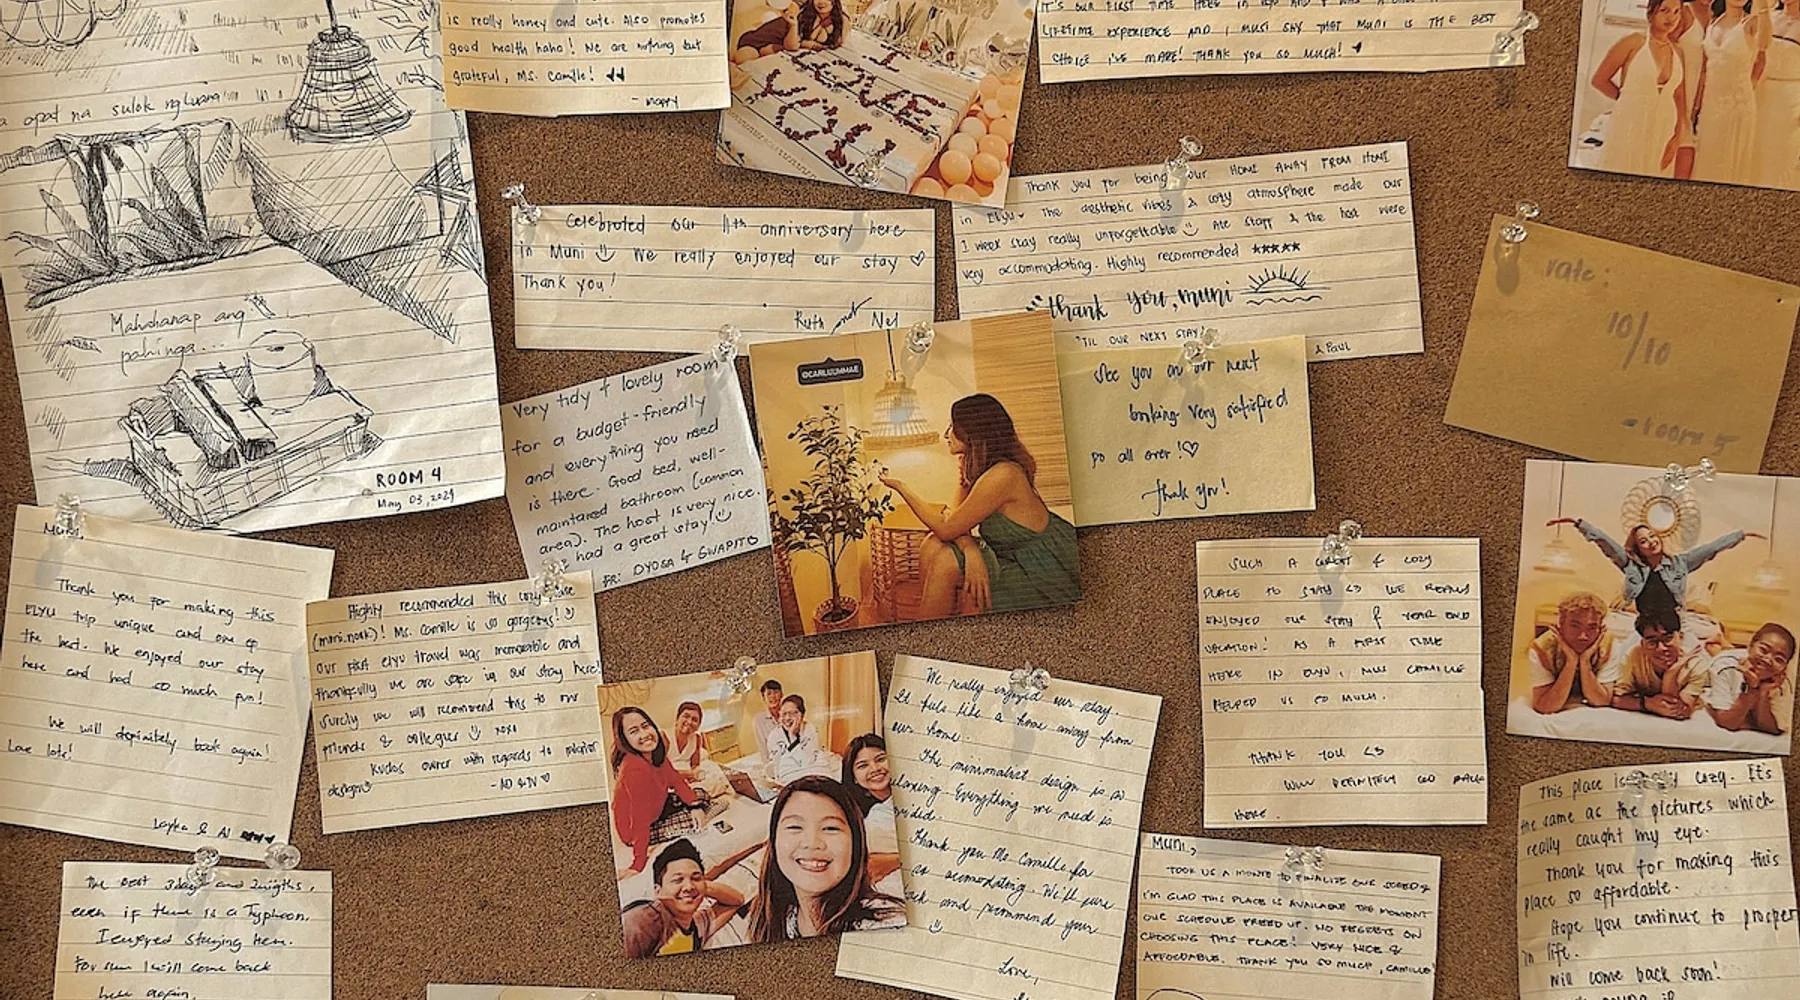 is really homey and cute. Also promotes
good health haha! We are nothing but
grateful, Ms. Camille!
- Mappy
I LOVE YOU
IT'S OUR FIRST TIME HERE IN
LIFETIME EXPERIENCE AND I MUST SAY THAT MUNI IS THE BEST
CHOICE I'VE MADE! THANK YOU SO MUCH!
a apat na sulok ng
Mahahanap ang
pahinga...
ROOM 4
May 03, 2024
Celebrated our 11th anniversary here
in Muni We really enjoyed our stay ♡
Thank you!
Ruth and Nel
Thank you for being our HOME AWAY FROM HOME
in ELYU. The aesthetic vibes & cozy atmosphere made our
1 week stay really unforgettable Ate staff & the host were
very accommodating. Highly recommended ★★★★★
"thank you, muni
'TIL OUR NEXT STAY!
& Paul
rate:
10/10
- room 5
Very tidy & lovely room
for a budget-friendly
and everything you need
is there. Good bed, well-
maintained bathroom (common
area). The host is very nice.
had a great stay!
FR: DYOSA & GWAPITO
@CARLIUMMAE
See you on our next
booking very satisfied
po all over!♡
Thank you!
Muni,
Thank you for making this
ELYU trip unique and one of
the best. We enjoyed our stay
here and had so much fun!
We will definitely book again!
Love lots!
& AJ
Highly recommended this cozy place
(muni.nook)! Ms. Camille is so gorgeous!
our first elyu travel was memorable and
thankfully we are safe in our stay here!
Surely we will recommend this to our
friends & collegues xoxo
Kudos owner with regards to interior
design
We really enjoyed our stay.
It feels like a home away from
our home.
The minimalist design is so
relaxing. Everything we need is
provided.
Thank you Ms. Camille for
so accomodating. We'll sure
back and recommend your
Love,
SUCH A GREAT & COZY
PLACE TO STAY <3 WE REALLY
ENJOYED OUR STAY & YEAR END
VACATION! AS A FIRST TIME
HERE IN ELYU, MISS CAMILLE
HELPED US SO MUCH.
THANK YOU <3
WILL DEFINITELY GO BACK
HERE.
the best 3days and 2nights,
even if there is a Typhoon.
I enjoyed staying here.
For sure I will come back
here again.
Muni,
TOOK US A MONTH TO FINALIZE OUR SCHED &
I'M GLAD THIS PLACE IS AVAILABLE THE MOMENT
OUR SCHEDULE FREED UP. NO REGRETS ON
CHOOSING THIS PLACE! VERY NICE &
AFFORDABLE. THANK YOU SO MUCH, CAMILLE
This place is cozy. It's
the same as the pictures which
really caught my eye.
Thank you for making this
place so affordable.
Hope you continue to prosper
in life.
Will come back soon!